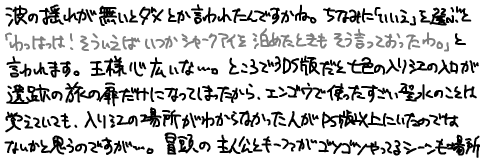 波の揺れが無いとダメとか言われたんですかね。ちなみに「いいえ」を選ぶと
「わっはっは！そういえばいつかシャークアイを泊めたときもそう言っておったわ。」と
言われます。王様心広いなー。ところで3DS版だと七色の入り江の入口が
遺跡の旅の扉だけになってしまったから、エンゴウで使ったすごい聖水のことは
覚えていても、入り江の場所がわからなかった人がPS版以上にいたのでは
ないかと思うのですがー。冒頭の主人公とキーファがゴソゴソやってるシーンも場所